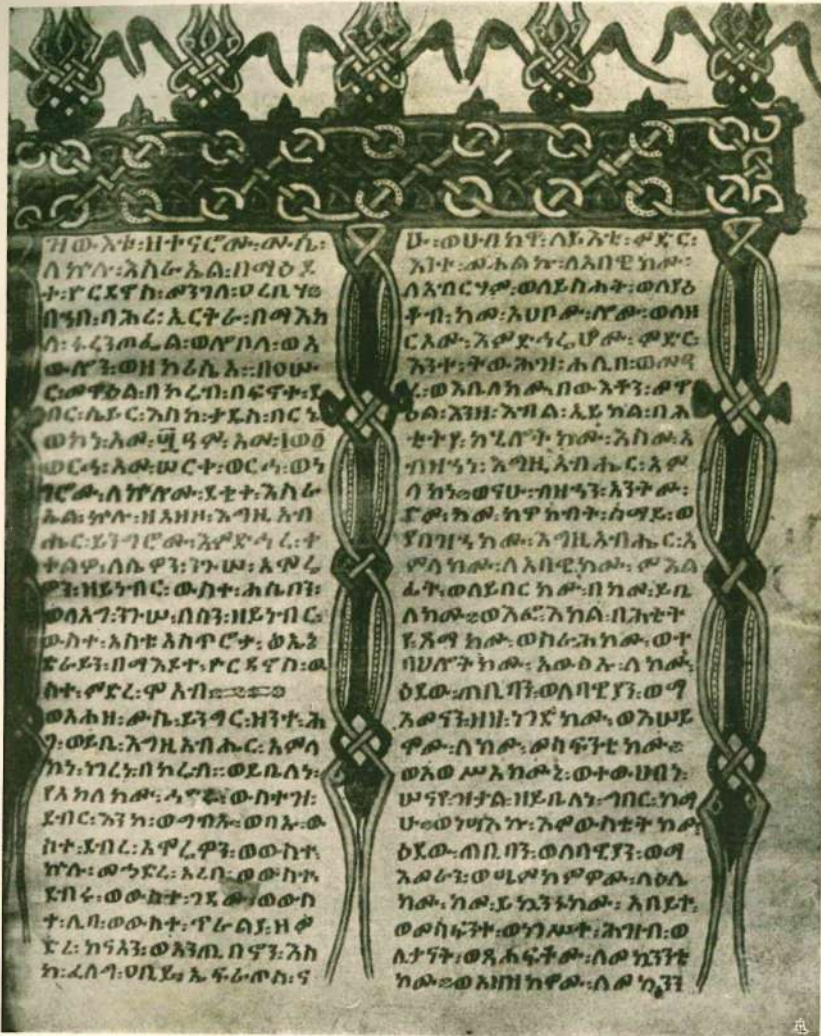 ዝውእቱ፡ዘተናገሮሙ፡ሙሴ፡
ለኵሉ፡እስራኤል፡በማዕዶ
ተ፡ዮርዳኖስ፡መንገለ፡ዐረቢሃ።
በኀበ፡ባሕረ፡ኤርትራ፡በማእከ
ለ፡ፋረን፡ጦፌል፡ወሎቦለ፡ወአ
ውሎን፡ወዘ
መዋዕል፡በኮሬብ፡በፍኖተ፡ደ
ብር፡ሴይር፡እስከ፡ቃዴስ፡በርኔ
ወኮነ፡አመ፡፵ዓም፡አመ፡፲ወ፩
ወርኅ፡አመ፡ሠርቀ፡ወርኅ፡ወነ
ገሮሙ፡ለኵሎሙ፡ደቂቀ፡እስራ
ኤል፡ኵሎ፡ዘአዘዞ፡እግዚአብ
ሔር፡ይንግሮሙ፡እምድኅረ፡ቀ
ተልዎ፡ለሴዎን፡ንጉሠ፡አሞሬ
ዎን፡ዘይነብር፡ውስተ፡ሐሴቦን፡
ወለአግ፡ንጉሠ፡በሳን፡ዘይነብር፡
ውስተ፡አስቱ አስጥሮታ፡ወኤኔ
ድራይን፡በማእዶተ፡ዮርዳኖስ፡ው
ስተ፡ምድረ፡ሞአብ።
ወአሐዘ፡ሙሴ፡ይንግር፡ዘንተ፡ሕ
ገ፡ወይቤ፡እግዚአብሔር፡አምላ
ክነ፡ነገረነ፡በኮሬብ፡ወይቤለነ፡
የአክለክሙ፡ኀዲር፡ውስተዝ፡
ደብር፡እንከ፡ወግብኡ፡ወባኡ፡ው
ስተ፡ደብረ፡አሞሬዎን፡ወውስተ፡
ኵሉ፡መኅደረ፡አረባ፡ወውስተ፡
ደብሩ፡ወውስተ፡ገዳሙ፡ወውስ
ተ፡ሊባ፡ወውስተ፡ጥራልያ፡ዘም
ድረ፡ከናአን፡ወአንጢበኖን፡እስ
ከ፡ፈለግ፡ዐቢይ፡ኤፍራጦስ፡ና
ሁ፡ወሀብኩክሙ፡ለይእቲ፡ምድር፡
እንተ፡መሐልኩ፡ለአበዊክሙ፡
ለአብርሃም፡ወለይስሐቅ፡ወለያዕ
ቆብ፡ከመ፡አሀቦሙ፡ሎሙ፡ወለዘ
ርእሙ፡እምድኅሬሆሙ፡ምድር፡
እንተ፡ትውሕዝ፡ሐሊበ፡ወመዓ
ረ፡ወእቤለክሙ፡በውእቶን፡መዋ
ዕል፡እንዘ፡እብል፡ኢይክል፡በሕ
ቲትየ፡ከሂሎትክሙ፡እስመ፡አ
ብዝኀነ፡እግዚአብሔር፡አም
ላክነ፡ወናሁ፡ብዙኃን፡አንትሙ፡
ዮም፡ከመ፡ከዋክብተ፡ሰማይ፡ወ
ያበዝኅክሙ፡እግዚአብሔር፡አ
ምላክሙ፡ለአበዊክሙ፡ምእል
ፊተ፡ወለይበርክሙ፡በከመ፡ይቤ
ለክሙ።ወእፎ፡እክል፡በሕቲት
የ፡ጻማክሙ፡ወስራሕክሙ፡ወተ
ባህሎትክሙ፡አውፅኡ፡ለክሙ፡
ዕደው፡ጠቢባን፡ወለባዊያን፡ወማ
እምራን፡ዘዘ፡ነገድክሙ፡ወእሠይ
ሞሙ፡ለክሙ፡መሳፍንቲክሙ።
ወአወሥአክሙኒ፡ወተውህበኒ፡
ሠናየ፡ዝቃል፡ዘይቤለነ፡ግበር፡ከማ
ሁ።ወነሣእኩ፡እምውስቴትክሙ
ዕደው፡ጠቢባን፡ወለባዊያን፡ወማ
እምራን፡ወሤምክምዎሙ፡ላዕሌ
ክሙ፡ከመ፡ይኰንኑክሙ፡አበይተ፡
ወመሳፍንተ፡ወነገሥተ፡ሕዝብ፡ወ
ሊቃናት፡ወጸሐፍትሙ፡ለመኳንንቲ
ክሙ።ወአዘዝክዎሙ፡ለመኳንን